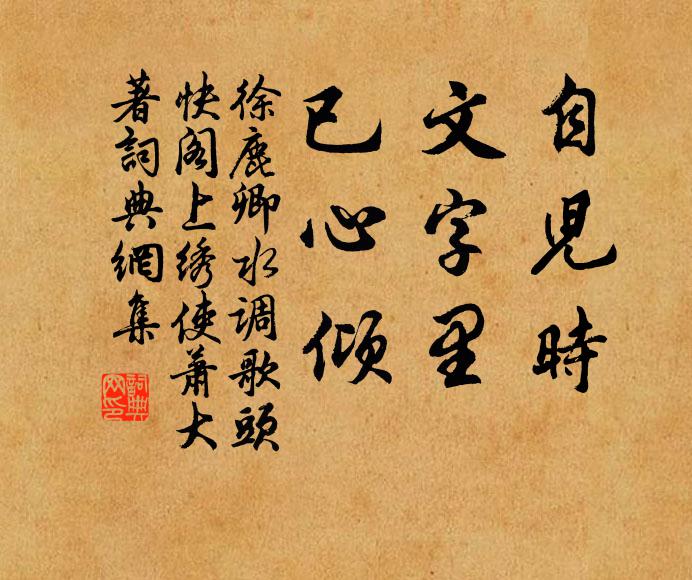 自児時
文字里
已心倾
徐鹿卿水调歌頭
快阁上绣使蕭大
著詞典網集
詞典網印